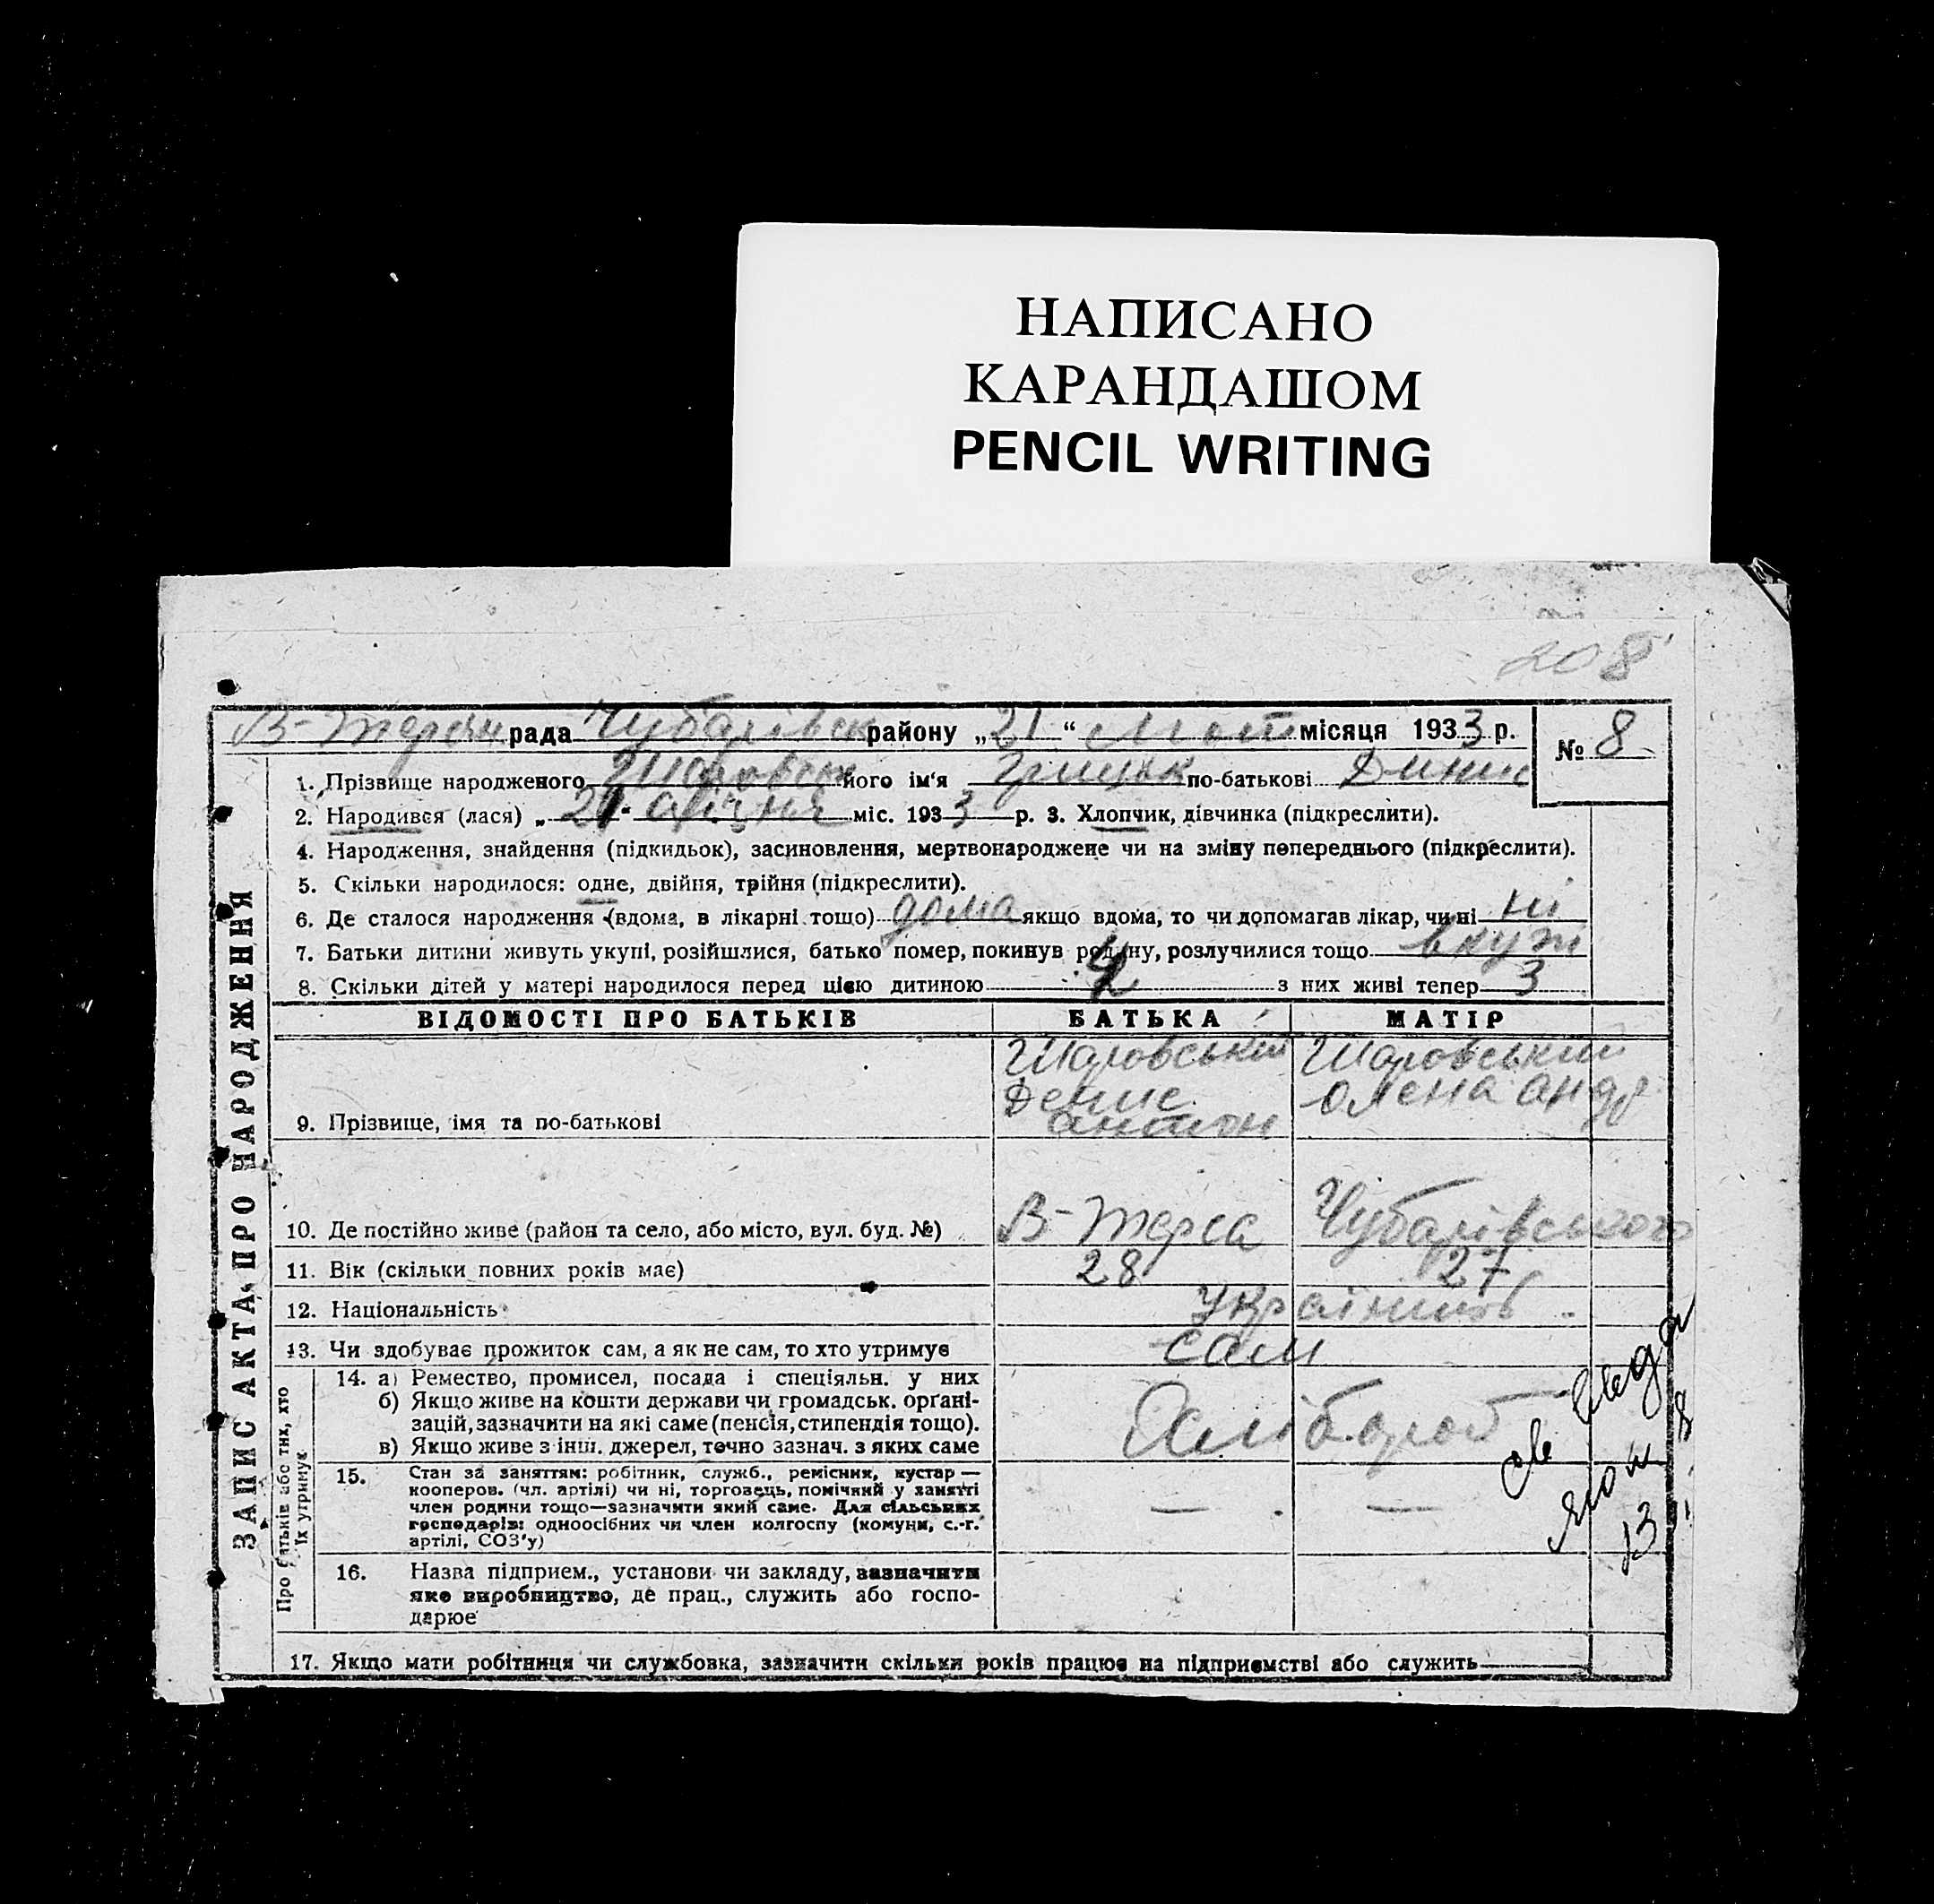 НАПИСАНО
КАРАНДАШОМ
PENCIL WRITING
208
В-Терсян. рада Чубарівськ району „21“ Лют місяця 1933 р. № 8
1. Прізвище народженого Шаровськ його ім‘я Грицьк по-батькові Динис
2. Народився (лася) „21“ січня міс. 1933 р. 3. Хлопчик, дівчинка (підкреслити).
4. Народження, знайдення (підкидьок), засиновлення, мертвонароджене чи на зміну попереднього (підкреслити).
5. Скільки народилося: одне, двійня, трійня (підкреслити).
6. Де сталося народження (вдома, в лікарні тощо) дома якщо вдома, то чи допомагав лікар, чи ні ні
7. Батьки дитини живуть укупі, розійшлися, батько помер, покинув родину, розлучилися тощо вкупі
8. Скільки дітей у матері народилося перед цією дитиною 4 з них живі тепер 3
ЗАПИС АКТА ПРО НАРОДЖЕННЯ
ВІДОМОСТІ ПРО БАТЬКІВ БАТЬКА МАТІР
Шаровський Шаровський
Денис Олена Андр
Антон
9. Прізвище, імя та по-батькові
10. Де постійно живе (район та село, або місто, вул. буд. №) В-Терса Чубарівського
11. Вік (скільки повних років має) 28 27
12. Національність
13. Чи здобуває прожиток сам, а як не сам, то хто утримує сам
Про батьків або тих, хто
їх утримує
14. а) Ремество, промисел, посада і спеціяльн. у них
б) Якщо живе на кошти держави чи громадськ. орґані-
зацій, зазначити на які саме (пенсія, стипендія тощо).
в) Якщо живе з інш. джерел, точно зазнач. з яких саме
15. Стан за заняттям: робітник, служб., ремісник, кустар —
кооперов. (чл. артілі) чи ні, торговець, помічний у занятті
член родини тощо—зазначити який саме. Для сільських
господарів: одноосібних чи член колгоспу (комуни, с.-г.
артілі, СОЗ'у) — —
16. Назва підприєм., установи чи закладу, зазначити
яке виробництво, де прац., служить або госпо-
дарює
17. Якщо мати робітниця чи службовка, зазначити скільки років працює на підприємстві або служить